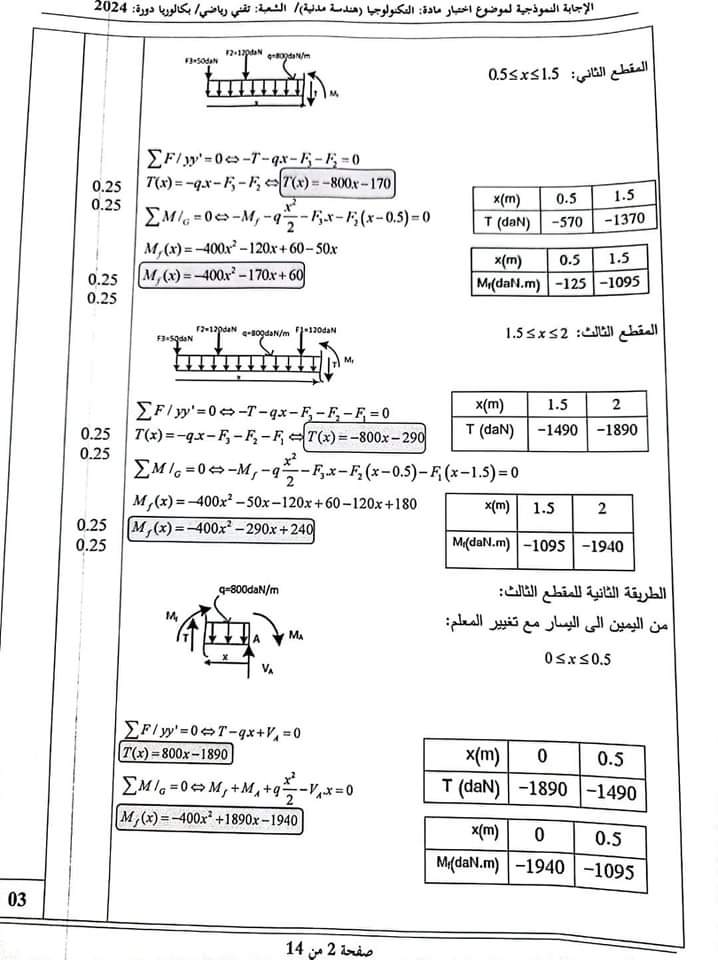 الإجابة النموذجية لموضوع اختبار مادة: التكنولوجيا (هندسة مدنية)/ الشعبة: تقني رياضي/ بكالوريا دورة: 2024
المقطع الثاني: 0.5≤x≤1.5
F3=50daN F2=120daN q=800daN/m
T Mf
x
∑F/yy'=0⇔−T−q.x−F₃−F₂=0
0.25 T(x)=−q.x−F₃−F₂⇔T(x)=−800x−170
0.25 ∑M/G=0⇔−Mf−q x²/2−F₃.x−F₂(x−0.5)=0
x(m) 0.5 1.5
T (daN) −570 −1370
Mf(x)=−400x²−120x+60−50x
0.25 Mf(x)=−400x²−170x+60
0.25
x(m) 0.5 1.5
Mf(daN.m) −125 −1095
المقطع الثالث: 1.5≤x≤2
F3=50daN F2=120daN q=800daN/m F1=120daN
T Mf
x
∑F/yy'=0⇔−T−qx−F₃−F₂−F₁=0
0.25 T(x)=−q.x−F₃−F₂−F₁⇔T(x)=−800x−290
0.25 ∑M/G=0⇔−Mf−q x²/2−F₃.x−F₂(x−0.5)−F₁(x−1.5)=0
x(m) 1.5 2
T (daN) −1490 −1890
Mf(x)=−400x²−50x−120x+60−120x+180
0.25 Mf(x)=−400x²−290x+240
0.25
x(m) 1.5 2
Mf(daN.m) −1095 −1940
الطريقة الثانية للمقطع الثالث:
من اليمين الى اليسار مع تغيير المعلم:
0≤x≤0.5
q=800daN/m
Mf T A MA
x
VA
∑F/yy'=0⇔T−qx+VA=0
T(x)=800x−1890
∑M/G=0⇔Mf+MA+q x²/2−VA.x=0
Mf(x)=−400x²+1890x−1940
x(m) 0 0.5
T (daN) −1890 −1490
x(m) 0 0.5
Mf(daN.m) −1940 −1095
03
صفحة 2 من 14